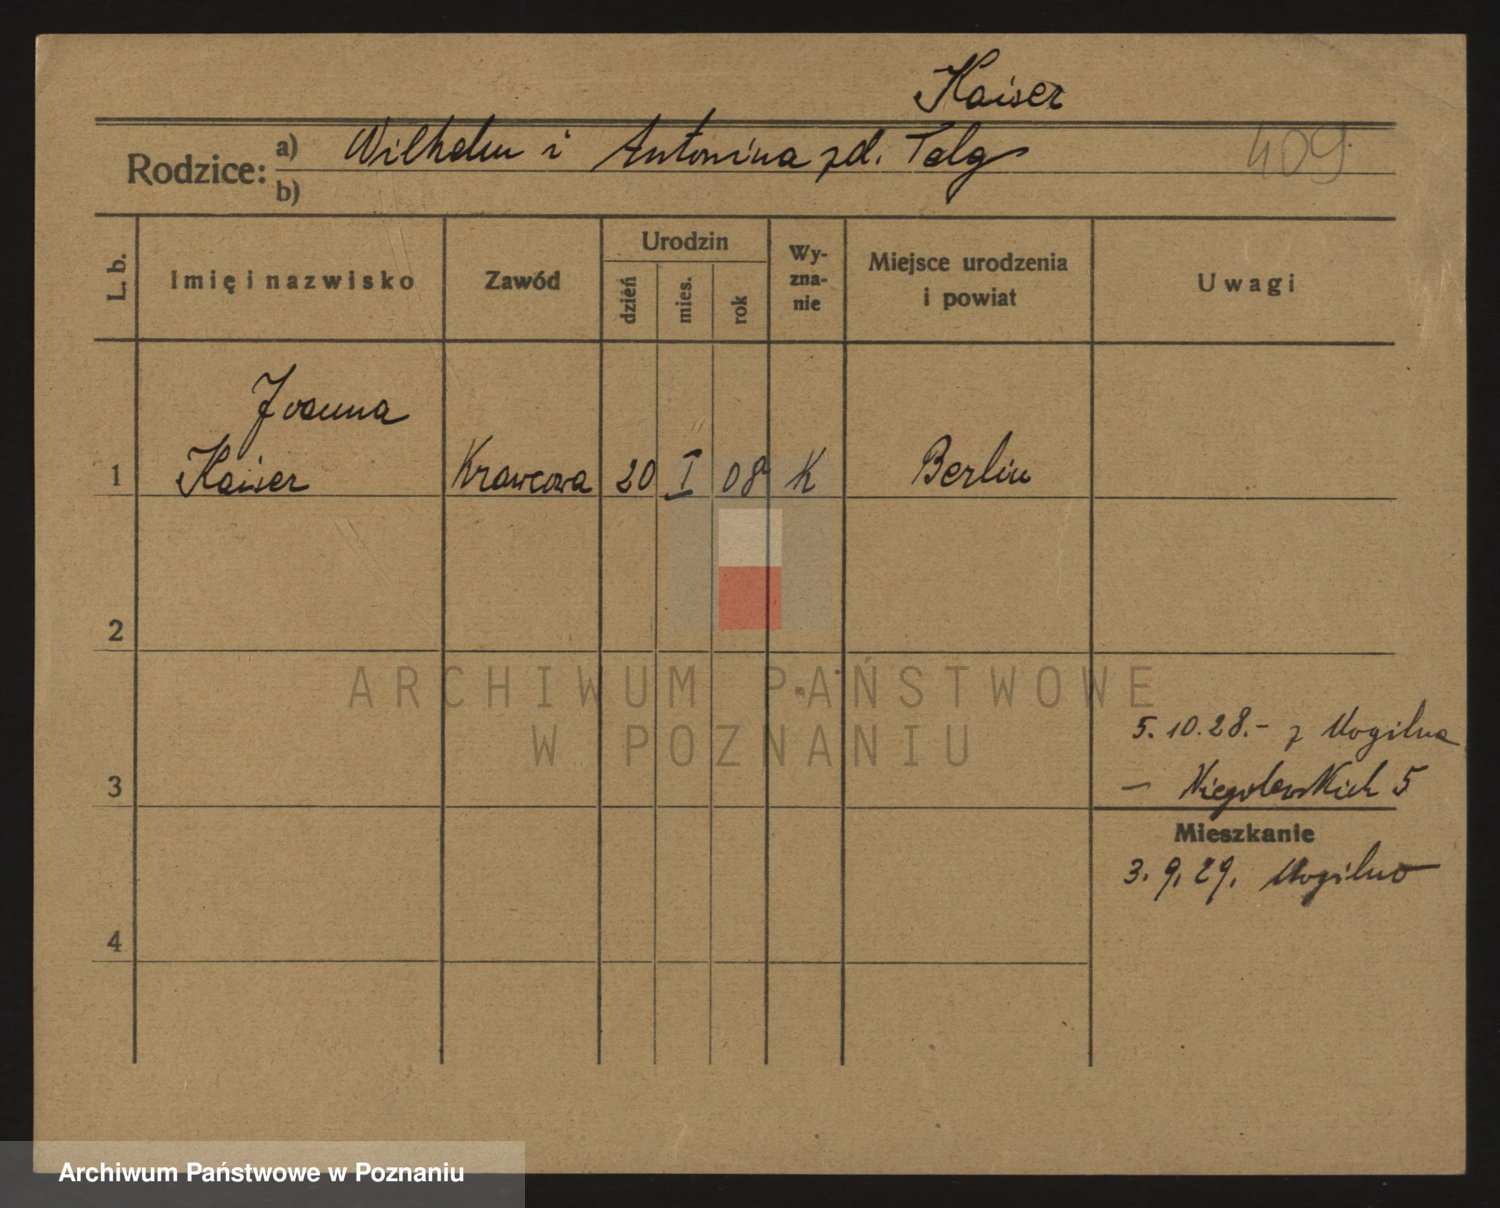 Kaiser
Rodzice: a) Wilhelm i Antonina zd. Telg
409
b)
L. b.
Imię i nazwisko
Zawód
Urodzin
dzień
mies.
rok
Wy-
zna-
nie
Miejsce urodzenia
i powiat
Uwagi
Joanna
1 Kaiser Krawcowa 20 I 08 K Berlin
2
ARCHIWUM PAŃSTWOWE
W POZNANIU
5. 10. 28. - z Mogilna
3 — Niegolewskich 5
Mieszkanie
3. 9. 29. Mogilno
4
Archiwum Państwowe w Poznaniu